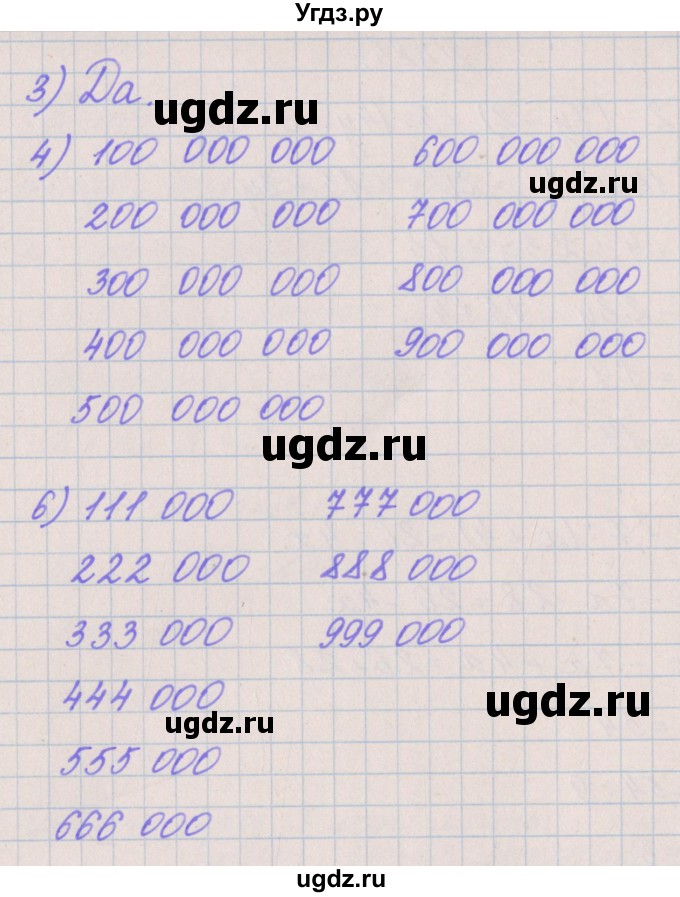 Угдз.ру
3) Да.
ugdz.ru
4) 100 000 000 600 000 000
ugdz.ru
200 000 000 700 000 000
300 000 000 800 000 000
400 000 000 900 000 000
500 000 000
ugdz.ru
6) 111 000 777 000
222 000 888 000
333 000 999 000
444 000
ugdz.ru
ugdz.ru
555 000
666 000
ugdz.ru